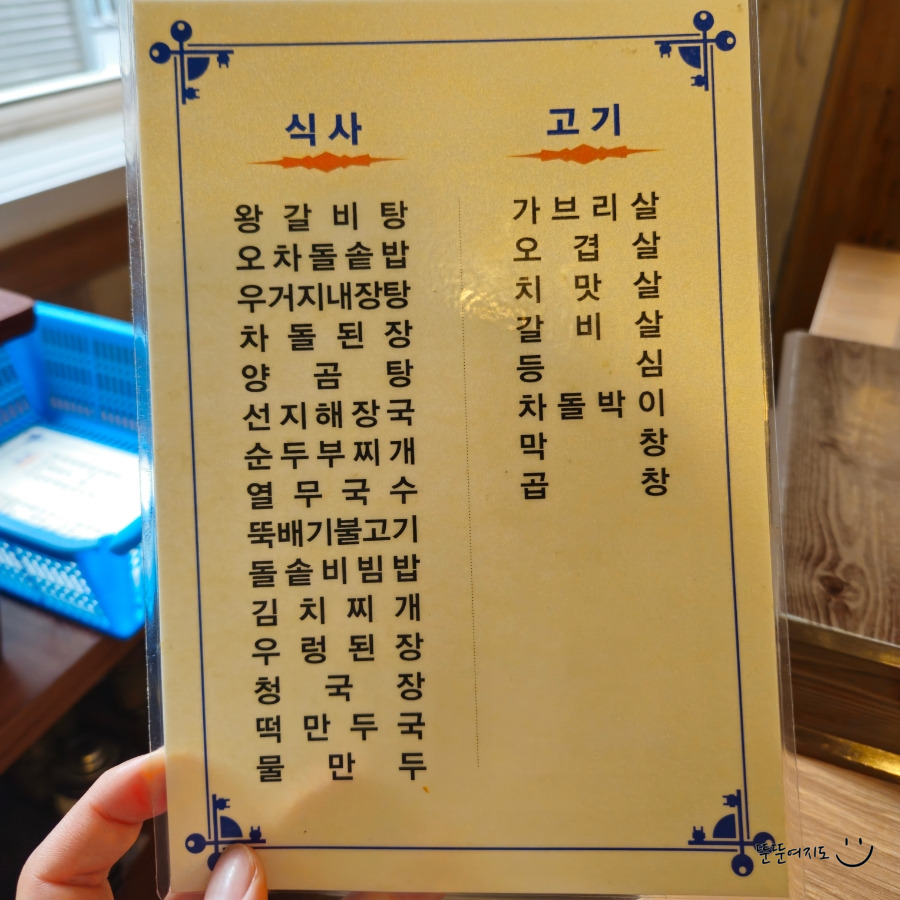 식사
왕갈비탕
오차돌솥밥
우거지내장탕
차돌된장
양곰탕
선지해장국
순두부찌개
열무국수
뚝배기불고기
돌솥비빔밥
김치찌개
우렁된장
청국장
떡만두국
물만두
고기
가브리살
오겹살
치맛살
갈비살
등심
차돌박이
막창
곱창
뚠뚠여지도